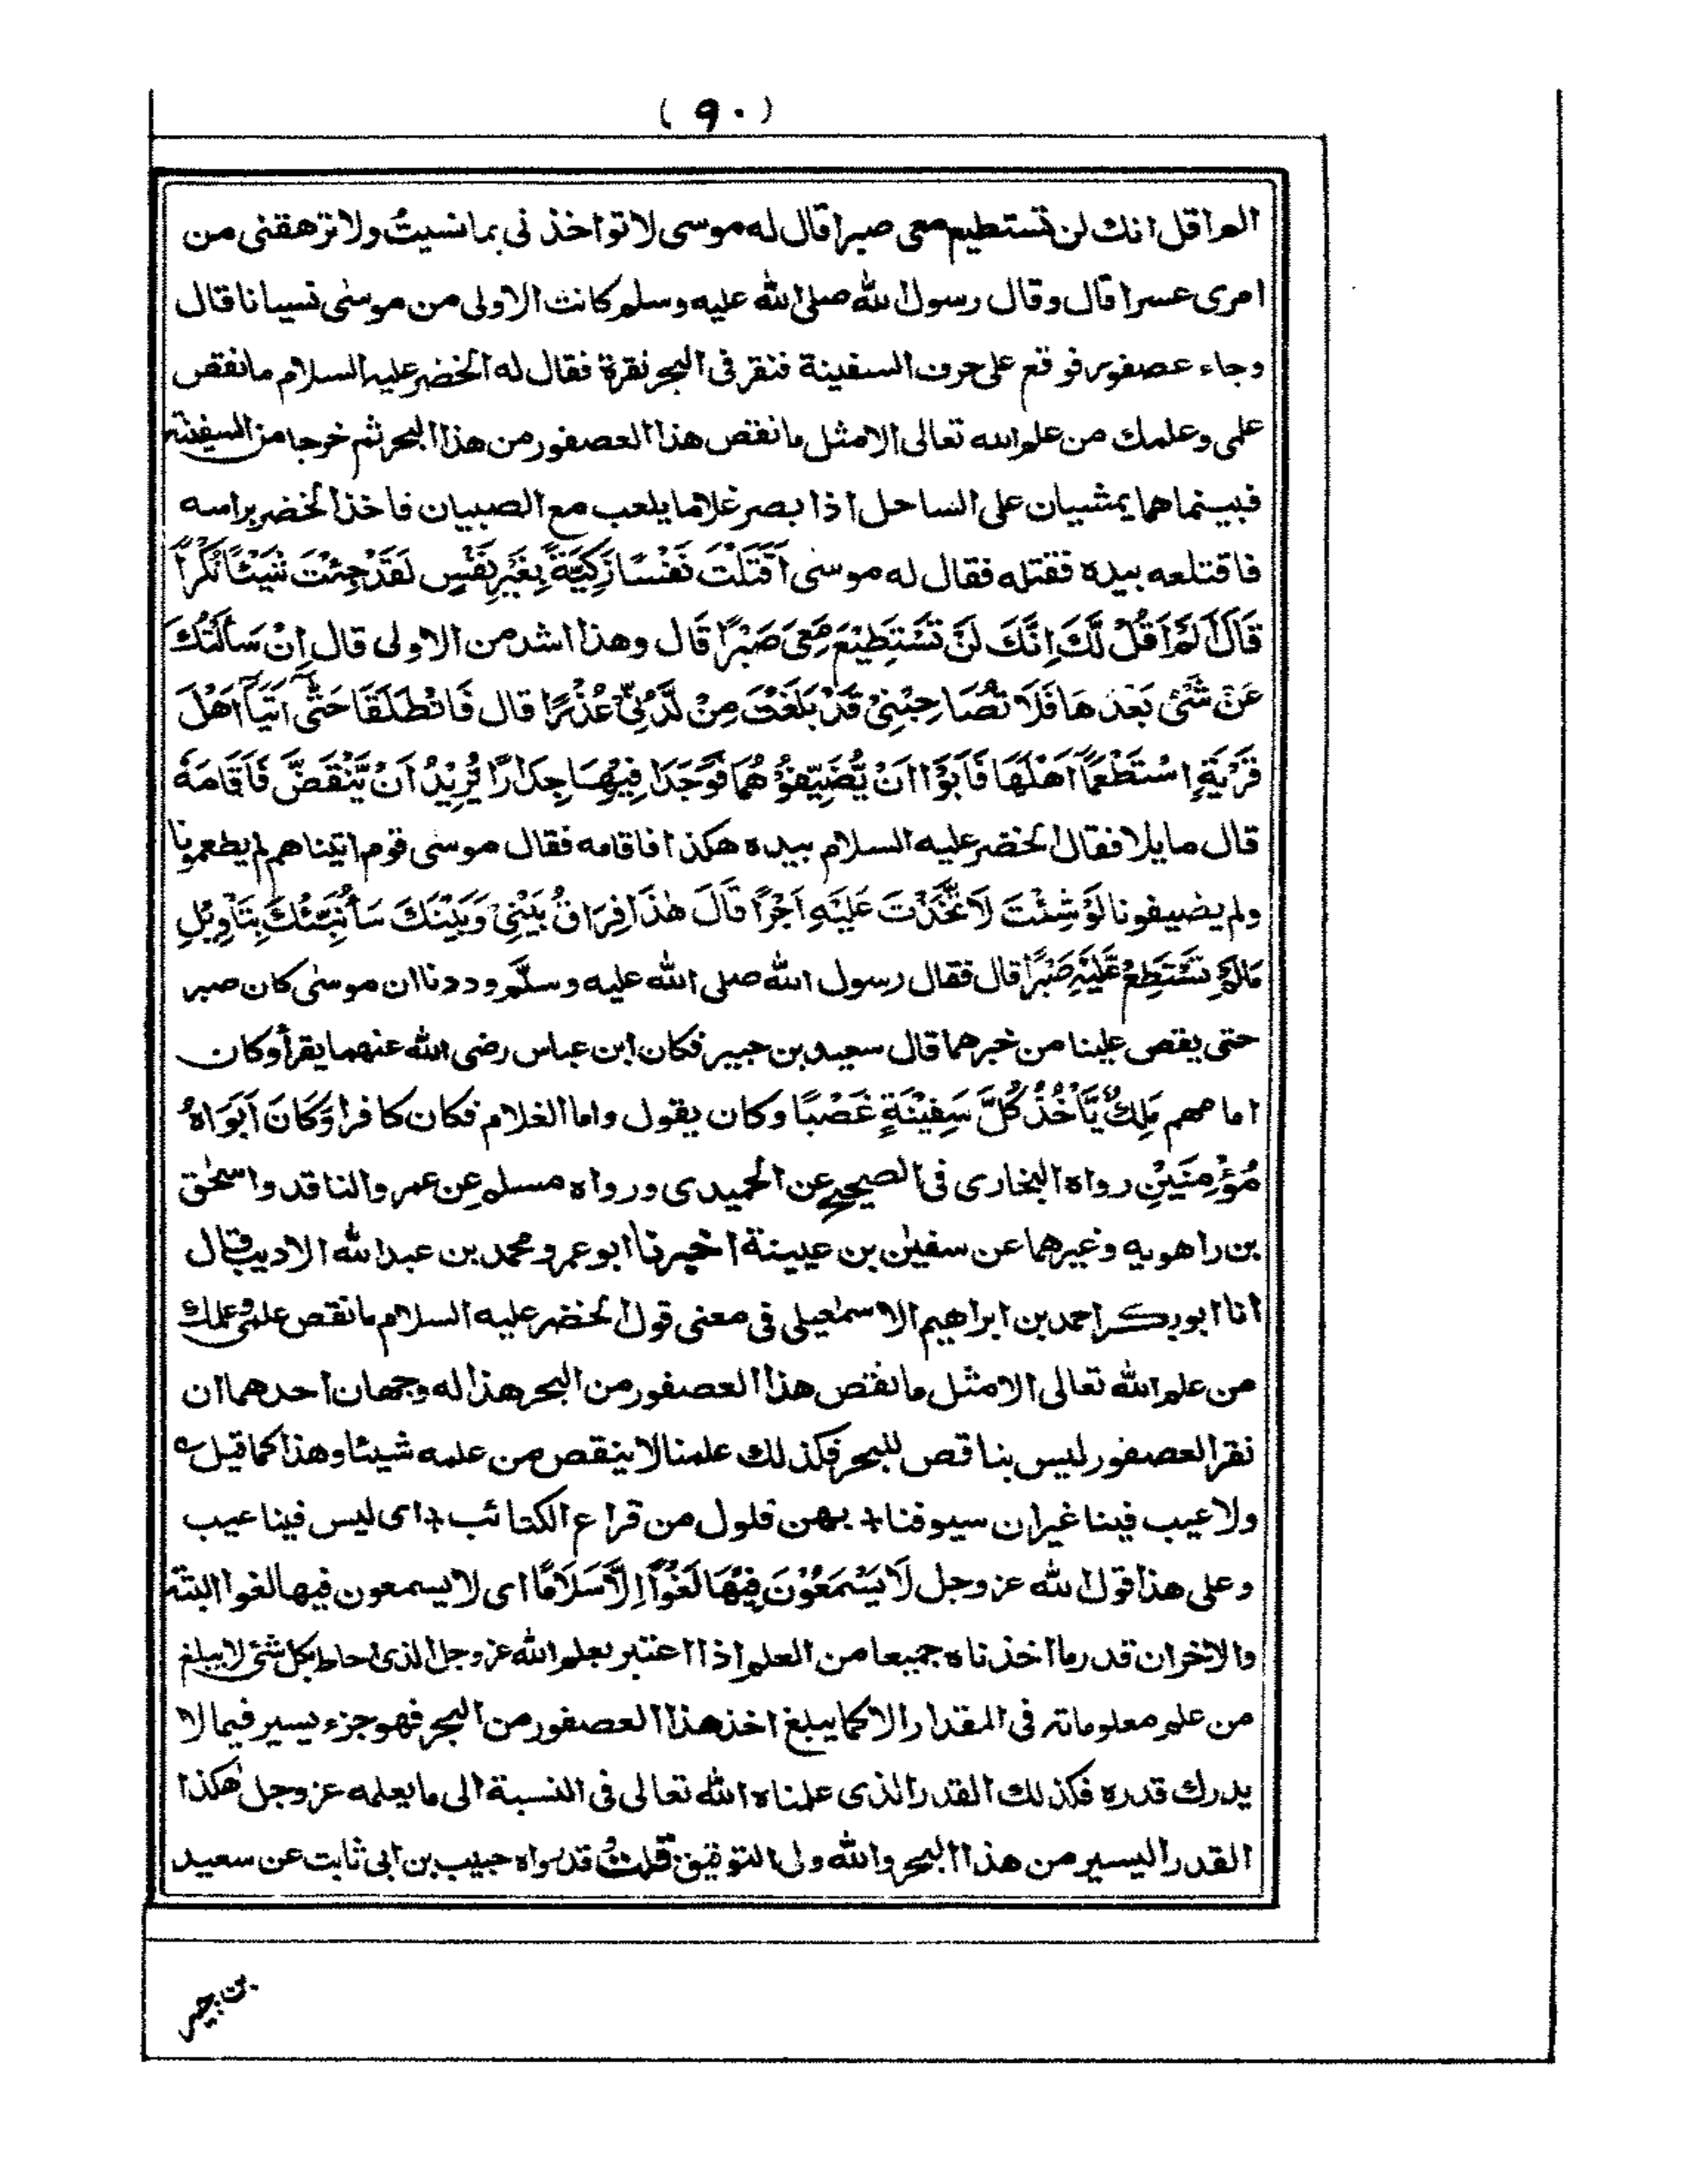 (٩٠)
الم اقل انك لن تستطيع معى صبرا قال له موسى لا تؤاخذنى بما نسيتُ ولا ترهقنى من
امرى عسرا قال وقال رسول الله صلى الله عليه وسلم كانت الاولى من موسىٰ نسيانا قال
وجاء عصفور فوقع على حرف السفينة فنقر فى البحر نقرة فقال له الخضر عليه السلام ما نقص
علمى وعلمك من علم الله تعالى الا مثل ما نقص هذا العصفور من هذا البحر ثم خرجا من السفينة
فبينما هما يمشيان على الساحل اذا بصر غلاما يلعب مع الصبيان فاخذ الخضر براسه
فاقتلعه بيده فقتله فقال له موسىٰ اَقَتَلْتَ نَفْسًا زَكِيَّةًۢ بِغَيْرِ نَفْسٍ لَقَدْ جِئْتَ شَيْئًا نُّكْرًا
قَالَ اَلَمْ اَقُلْ لَّكَ اِنَّكَ لَنْ تَسْتَطِيْعَ مَعِىَ صَبْرًا قَال وهذا اشد من الاولى قال اِنْ سَاَلْتُكَ
عَنْ شَىْءٍ بَعْدَهَا فَلَا تُصَاحِبْنِىْ قَدْ بَلَغْتَ مِنْ لَّدُنِّىْ عُذْرًا قال فَانْطَلَقَا حَتّٰى اَتَيَآ اَهْلَ
قَرْيَةِ اِسْتَطْعَمَآ اَهْلَهَا فَاَبَوْا اَنْ يُّضَيِّفُوْهُمَا فَوَجَدَا فِيْهَا جِدَارًا يُّرِيْدُ اَنْ يَّنْقَضَّ فَاَقَامَهٗ
قال مايلا فقال الخضر عليه السلام بيده هكذا فاقامه فقال موسى قوم اتيناهم لم يطعمونا
ولم يضيفونا لَوْ شِئْتَ لَاتَّخَذْتَ عَلَيْهِ اَجْرًا قَالَ هٰذَا فِرَاقُ بَيْنِىْ وَبَيْنِكَ سَاُنَبِّئُكَ بِتَاْوِيْلِ
مَالَمْ تَسْتَطِعْ عَّلَيْهِ صَبْرًا قال فقال رسول الله صلى الله عليه وسلَّم وددنا ان موسىٰ كان صبر
حتى يقص علينا من خبرهما قال سعيد بن جبير فكان ابن عباس رضى الله عنهما يقرأ وكان
امامهم مَلِكٌ يَّاْخُذُ كُلَّ سَفِيْنَةٍ غَصْبًا وكان يقول واما الغلام فكان كافرا وَّكَانَ اَبَوَاهُ
مُؤْمِنَيْنِ رواه البخارى فى الصحيح عن الحميدى ورواه مسلم عن عمرو الناقد واسحٰق
بن راهويه وغيرهما عن سفيٰن بن عيينة اخبرنا ابو عمرو محمد بن عبد الله الاديب قال
انا ابو بكر احمد بن ابراهيم الاسمٰعيلى فى معنى قول الخضر عليه السلام ما نقص علمى وعلمك
من علم الله تعالى الا مثل ما نقص هذا العصفور من البحر هذا له وجهان احدهما ان
نقر العصفور ليس بناقص للبحر فكذلك علمنا لا ينقص من علمه شيئا وهذا كما قيل ؎
ولا عيب فينا غير ان سيوفنا + بهن فلول من قراع الكتائب + اى ليس فينا عيب
وعلى هذا قول الله عز وجل لَا يَسْمَعُوْنَ فِيْهَا لَغْوًا اِلَّا سَلَامًا اى لا يسمعون فيها لغوا البتة
والاخر ان قدر ما اخذناه جميعا من العلم اذا اعتبر بعلم الله عز وجل الذى احاط بكل شئ لا يبلغ
من علم معلوماته فى المقدار الا كما يبلغ اخذ هذا العصفور من البحر فهو جزء يسير فيما لا
يدرك قدره فكذلك القدر الذى علمناه الله تعالى فى النسبة الى ما يعلمه عز وجل هكذا
القدر اليسير من هذا البحر والله ولى التوفيق قلتُ قد رواه حبيب بن ابى ثابت عن سعيد
بن جبير